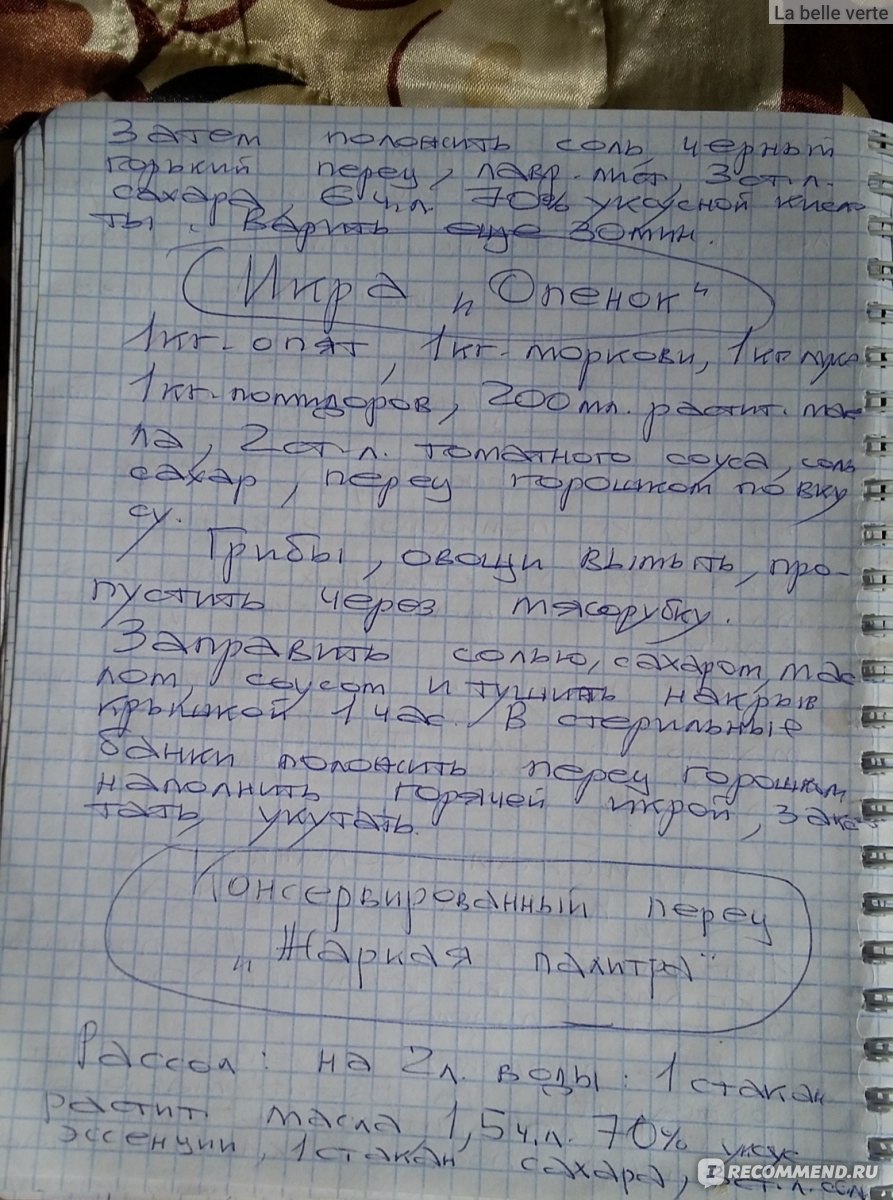 La belle verte
Затем положить соль, черный
горький перец, лавр. лист, 3 ст. л.
сахара, 6 ч. л. 70% уксусной кисло
ты. Варить еще 30 мин.
Икра „Опенок“
1 кг. опят, 1 кг. моркови, 1 кг лука
1 кг. помидоров, 200 мл. растит. мас
ла, 2 ст. л. томатного соуса, соль
сахар, перец горошком по вку
су.
Грибы, овощи вымыть, про-
пустить через мясорубку.
Заправить солью, сахаром, мас
лом, соусом и тушить накрыв
крышкой 1 час. В стерильные
банки положить перец горошком
наполнить горячей икрой, зака
тать, укутать.
Консервированный перец
„Жаркая палитра“
Рассол: на 2 л. воды: 1 стакан
растит. масла 1,5 ч. л. 70% уксус
эссенции, 1 стакан сахара, ст. л. соли
RECOMMEND.RU